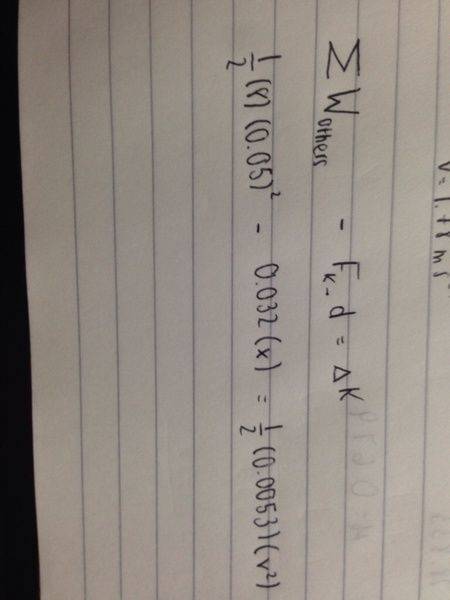 V =
ΣW_others - F_k · d = ΔK
½(8)(0.05)² - 0.032(x) = ½(0.0053)(v²)